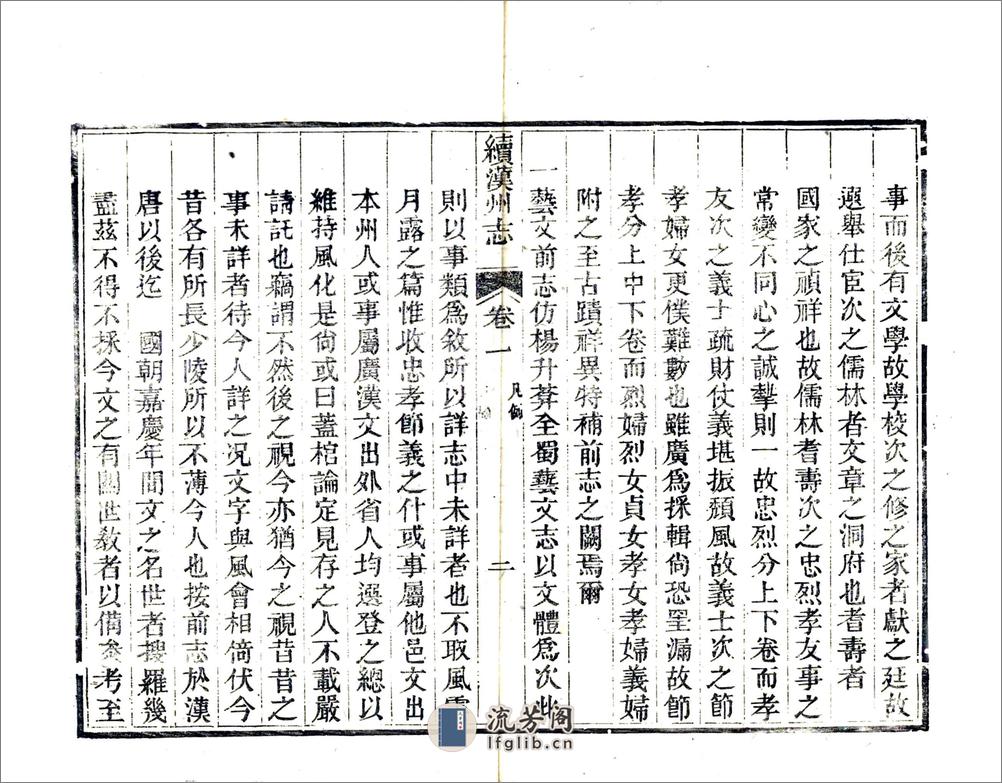 事而後有文學故學校次之修之家者獻之廷故
選舉仕宦次之儒林者文章之洞府也耆壽者
國家之禎祥也故儒林耆壽次之忠烈孝友事之
常變不同心之誠摯則一故忠烈分上下卷而孝
友次之義士疏財仗義堪振頹風故義士次之節
孝婦女更僕難數也雖廣爲採輯尙恐罣漏故節
孝分上中下卷而烈婦烈女貞女孝女孝婦義婦
附之至古蹟祥異特補前志之闕焉爾
一藝文前志仿楊升菴全蜀藝文志以文體爲次此
續漢州志 卷一 凡例 二
則以事類爲敘所以詳志中未詳者也不取風雲
月露之篇惟收忠孝節義之什或事屬他邑文出
本州人或事屬廣漢文出外省人均選登之總以
維持風化是尙或曰蓋棺論定見存之人不載嚴
請託也竊謂不然後之視今亦猶今之視昔昔之
事未詳者待今人詳之况文字與風會相倚伏今
昔各有所長少陵所以不薄今人也按前志於漢
唐以後迄 國朝嘉慶年間文之名世者搜羅幾
盡茲不得不採今文之有關世敎者以備參考至
流芳阁
lfglib.cn